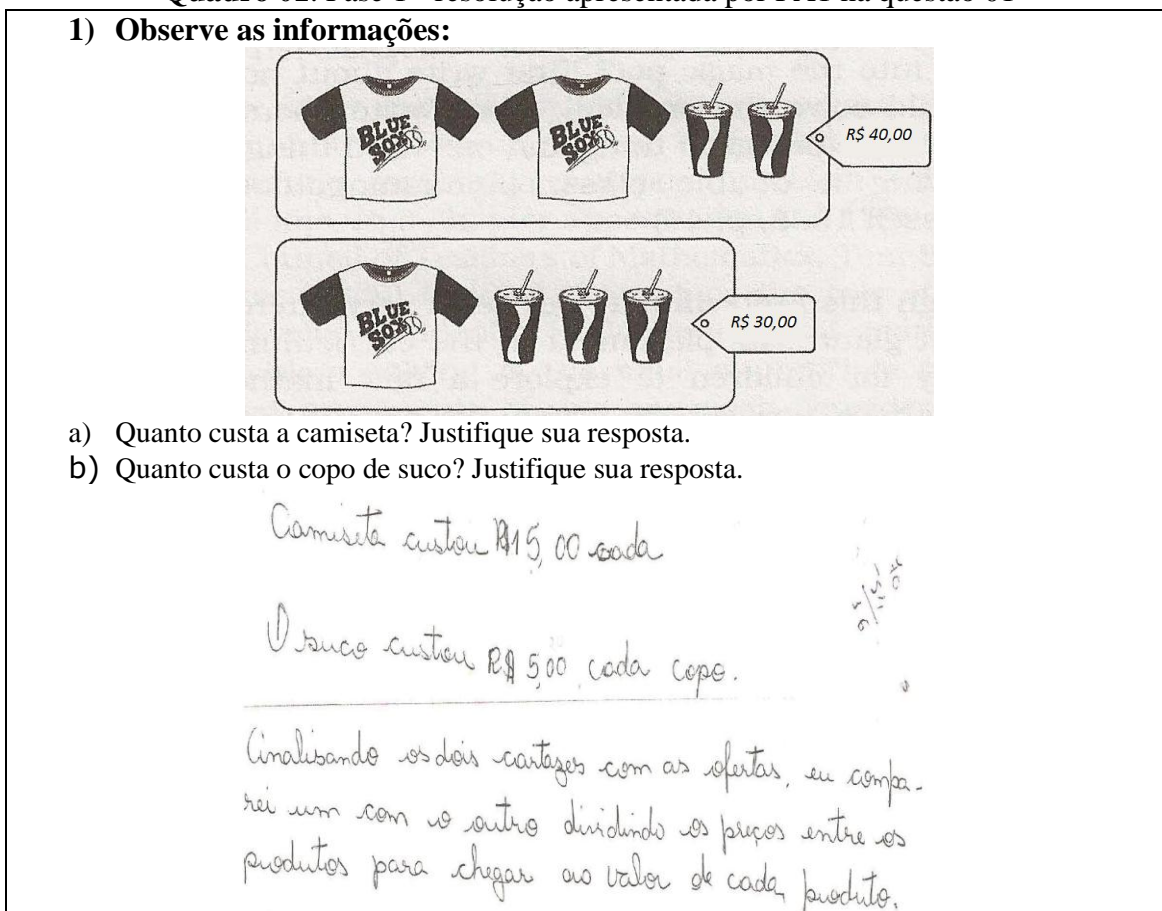 1) Observe as informações:
BLUE SOX
BLUE SOX
R$ 40,00
BLUE SOX
R$ 30,00
a) Quanto custa a camiseta? Justifique sua resposta.
b) Quanto custa o copo de suco? Justifique sua resposta.
Camiseta custou R$15,00 cada
O suco custou R$ 5,00 cada copo.
Analisando os dois cartazes com as ofertas, eu compa-
rei um com o outro dividindo os preços entre os
produtos para chegar ao valor de cada produto.